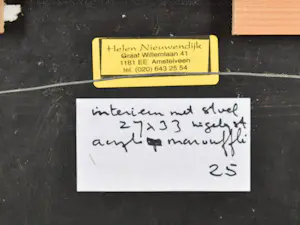 Helen Nieuwendijk
Graaf Willemlaan 41
1181 EE Amstelveen
tel. (020) 643 25 54
interieur met stoel
27x33
acryl marouffli
25